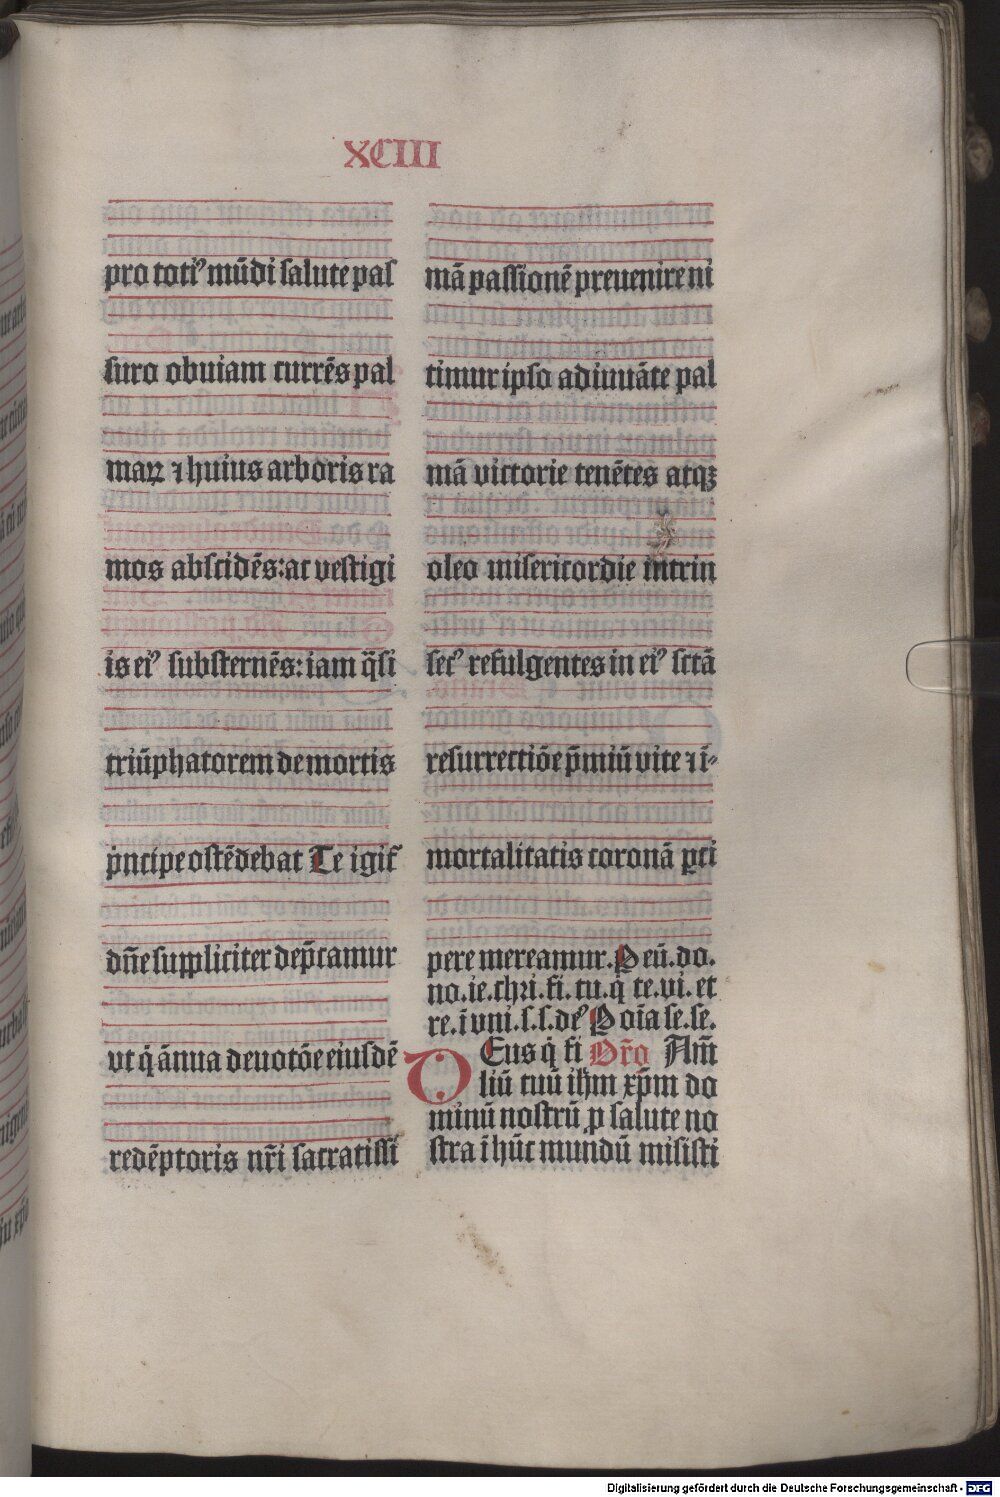 XCIII
pro toti᷒ mūdi salute pas
suro obuiam currēs pal
maꝝ ⁊ huius arboris ra
mos abscidēs: ac vestigi
is ei᷒ substernēs: iam q̄si
triūphatorem de mortis
p̄ncipe ostēdebat Te igit̄
dn̄e suppliciter dep̄camur
vt q̄ ānua deuotōe eiusdē
redēptoris nr̄i sacratissi
mā passionē preuenire ni
timur ipso adiuuāte pal
mā victorie tenētes atqꝫ
oleo misericordie intrin
sec᷒ refulgentes in ei᷒ sctā
resurrectiōe p̄miū vite ⁊ ī-
mortalitatis coronā ꝑci
pere mereamur. P eū. do.
no. ie. chri. fi. tu. q̄ te. vi. et
re. ī vni. s. s. de᷒ P oīa se. se.
DEus q̄ fi Or̄o Am̄
liū tuū ih̄m xp̄m do
minū nostrū ꝓ salute no
stra ī hūc mundū misisti
Digitalisierung gefördert durch die Deutsche Forschungsgemeinschaft - DFG